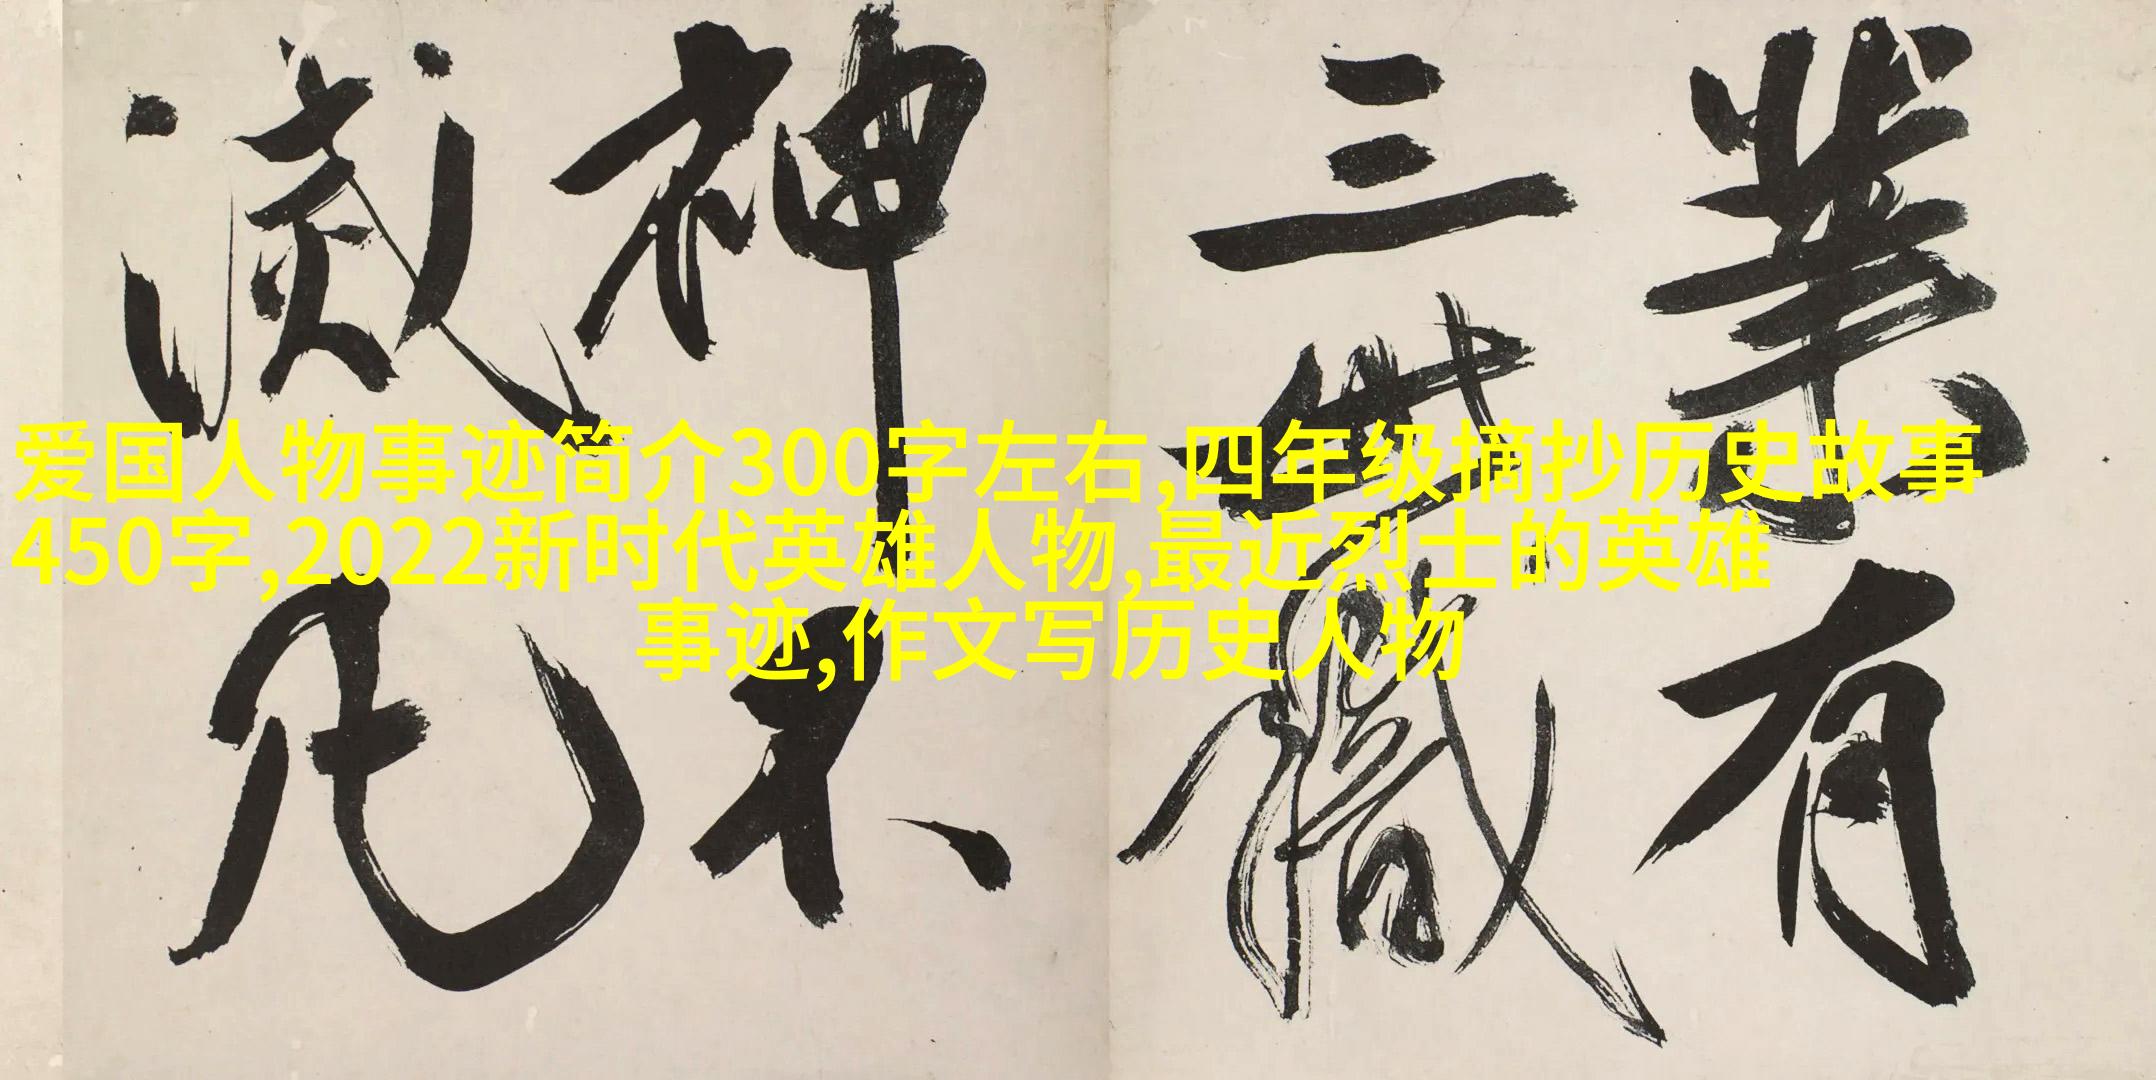 業有
三世職
神不
滅凡
爱国人物事迹简介300字左右,四年级摘抄历史故事
450字,2022新时代英雄人物,最近烈士的英雄
事迹,作文写历史人物